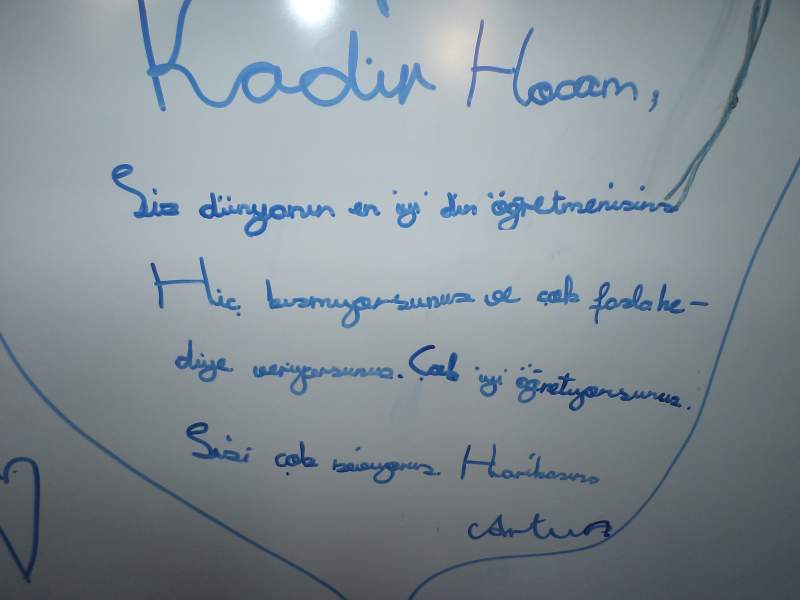 Kadir Hocam,
Siz dünyanın en iyi din öğretmenisiniz
Hiç kızmıyorsunuz ve çok fazla he-
diye veriyorsunuz. Çok iyi öğretiyorsunuz.
Sizi çok seviyoruz. Harikasınız